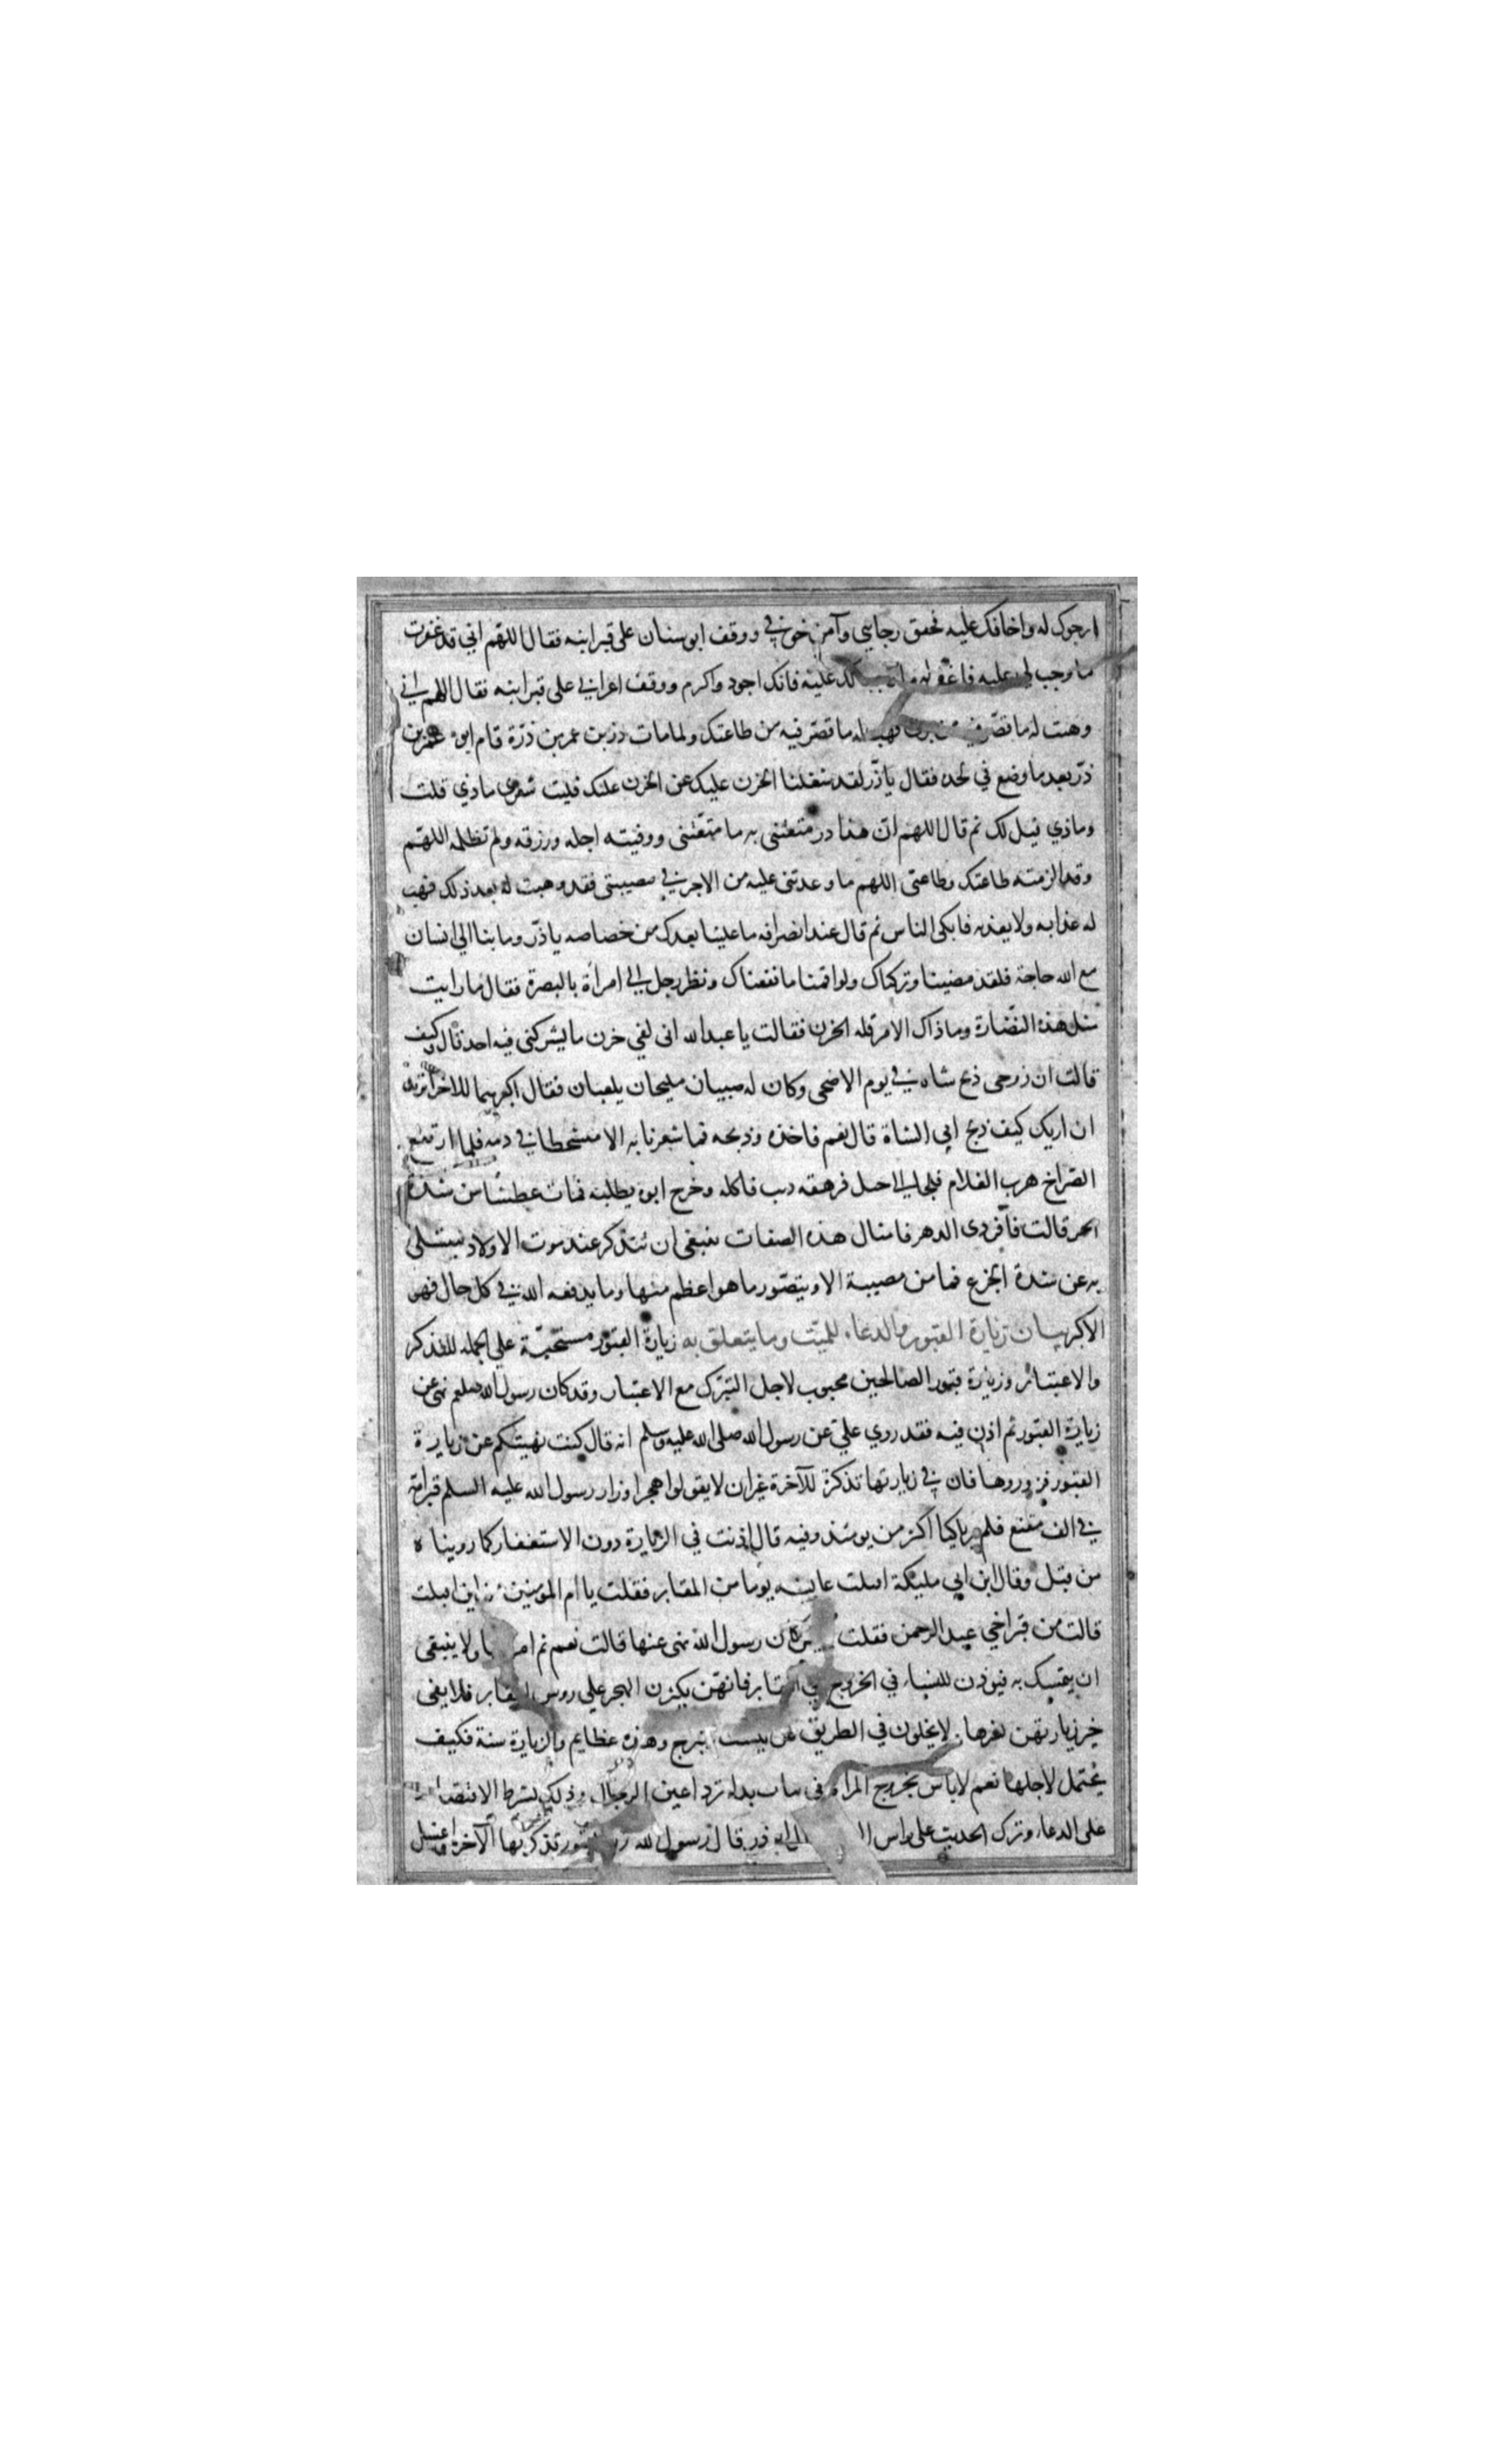 ارجوك له واخافك عليه فحقق رجايي وآمن خوفي ووقف ابو سنان على قبر ابنه فقال اللهم اني قد غفرت
ما وجب لي عليه فاغفر له ما وجب لك عليه فانك اجود واكرم ووقف اعرابي على قبر ابنه فقال اللهم اني
وهبت له ما قصر فيه من بري فهب له ما قصر فيه من طاعتك ولما مات ذر بن عمر بن ذرة قام ابوه عمر بن
ذرّ بعد ما وضع في لحده فقال يا ذّر لقد شغلنا الحزن عليك عن الحزن علنك فليت شعري ماذي قلت
وماذي قيل لك ثم قال اللهم انّ هذا ذر متعتنى به ما متعّتنى ووفيته اجله ورزقه ولم تظلمه اللهّم
وقد الزمته طاعتك وطاعتى اللهم ما وعدتنى عليه من الاجر في مصيبتى فقد وهبت له بعد ذلك فهب
له عذابه ولا يعذبه فابكى الناس ثم قال عند انصرافه ما علينا بعدك من خصاصه يا ذّر وما بنا الى انسان
مع الله حاجة فلقد مضينا وتركناك ولو اقمنا ما نفعناك ونظر رجل الي امرأة بالبصرة فقال ما رايت
مثل هذه النضّارة وما ذاك الا من قله الحزن فقالت يا عبد الله انى لفي حزن ما يشركنى فيه احد قال كيف
قالت ان زوجى ذبح شاه في يوم الاضحى وكان له صبيان مليحان يلعبان فقال اكبرهما للاخر اتريد
ان اريك كيف ذبح ابي الشاة قال نعم فاخذه وذبحه فما شعرنا به الا متشحطا في دمه فلما ارتفع
الصّراخ هرب الغلام فلجا الي جبل فرهقه ديب فاكله وخرج ابوه يطلبه فمات عطشا من شدة
الحر قالت فأفردى الدهر فامثال هذه الصفات ينبغى ان تتذكر عند موت الاولاد ليتسلى
به عن شدة الجزع فما من مصيبة الا ويتصّور ما هو اعظم منها وما يدفعه الله في كل حال فهو
الاكبر بيان زيارة القبور والدعاء للميّت وما يتعلق به زيارة القبور مستحبّة علي الجمله للتذكر
والاعتبار وزيارة قبور الصالحين محبوب لاجل التبّرك مع الاعتبار وقد كان رسول الله صلعم نهى عن
زيارة القبور ثم اذن فيه فقد روي علي عن رسول الله صلى الله عليه وسلم انه قال كنت نهيتكم عن زيارة
القبور فزوروها فان في زيارتها تذكرة للآخرة غير ان لا يقولوا هجرا وزار رسول الله عليه السلم قبر امّه
في الف مقنع فلم ير باكيا اكثر من يومئذ وفيه قال اذنت في الزيارة دون الاستغفار كما رويناه
من قبل وقال ابن ابي مليكة اقبلت عايشه يوما من المقابر فقلت يا ام المومنين من اين اقبلت
قالت من قبر اخي عبد الرحمن فقلت كان رسول الله نهى عنها قالت نعم ثم امر بها ولا ينبغى
ان يتمسك به فيوذن للنساء في الخروج الي المقابر فانهّن يكثرن الهجر علي روس المقابر فلا يفى
خير زيارتهن بشرها ولا يخلون في الطريق عن تبرج وهذه عظايم والزيارة سنة فكيف
يحتمل لاجلها نعم لا باس بخروج المراة فى ثياب بذله ترد اعين الرجال وذلك بشرط الاقتصار
على الدعاء وترك الحديث على راس ذر قال رسول الله زر القبور تذكر بها الآخرة واغسل